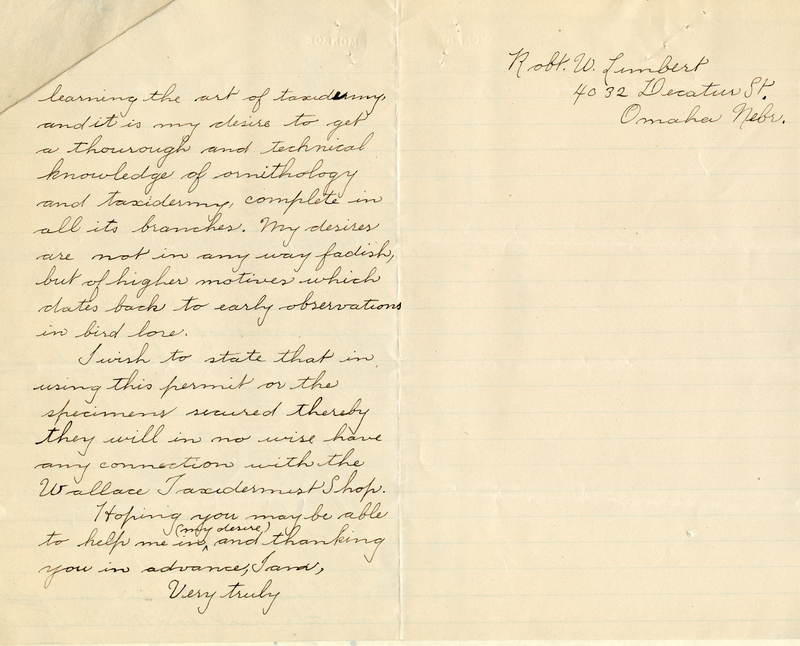 learning the art of taxidermy,
and it is my desire to get
a thourough and technical
knowledge of ornithology
and taxidermy, complete in
all its branches. My desires
are not in any way fadish,
but of higher motives which
dates back to early observations
in bird lore.
I wish to state that in
using this permit or the
specimens secured thereby
they will in no wise have
any connection with the
Wallace Taxidermist Shop.
Hoping you may be able
(my desire)
to help me in, and thanking
you in advance, I am,
Very truly
Robt. W. Limbert
4032 Decatur St.
Omaha Nebr.